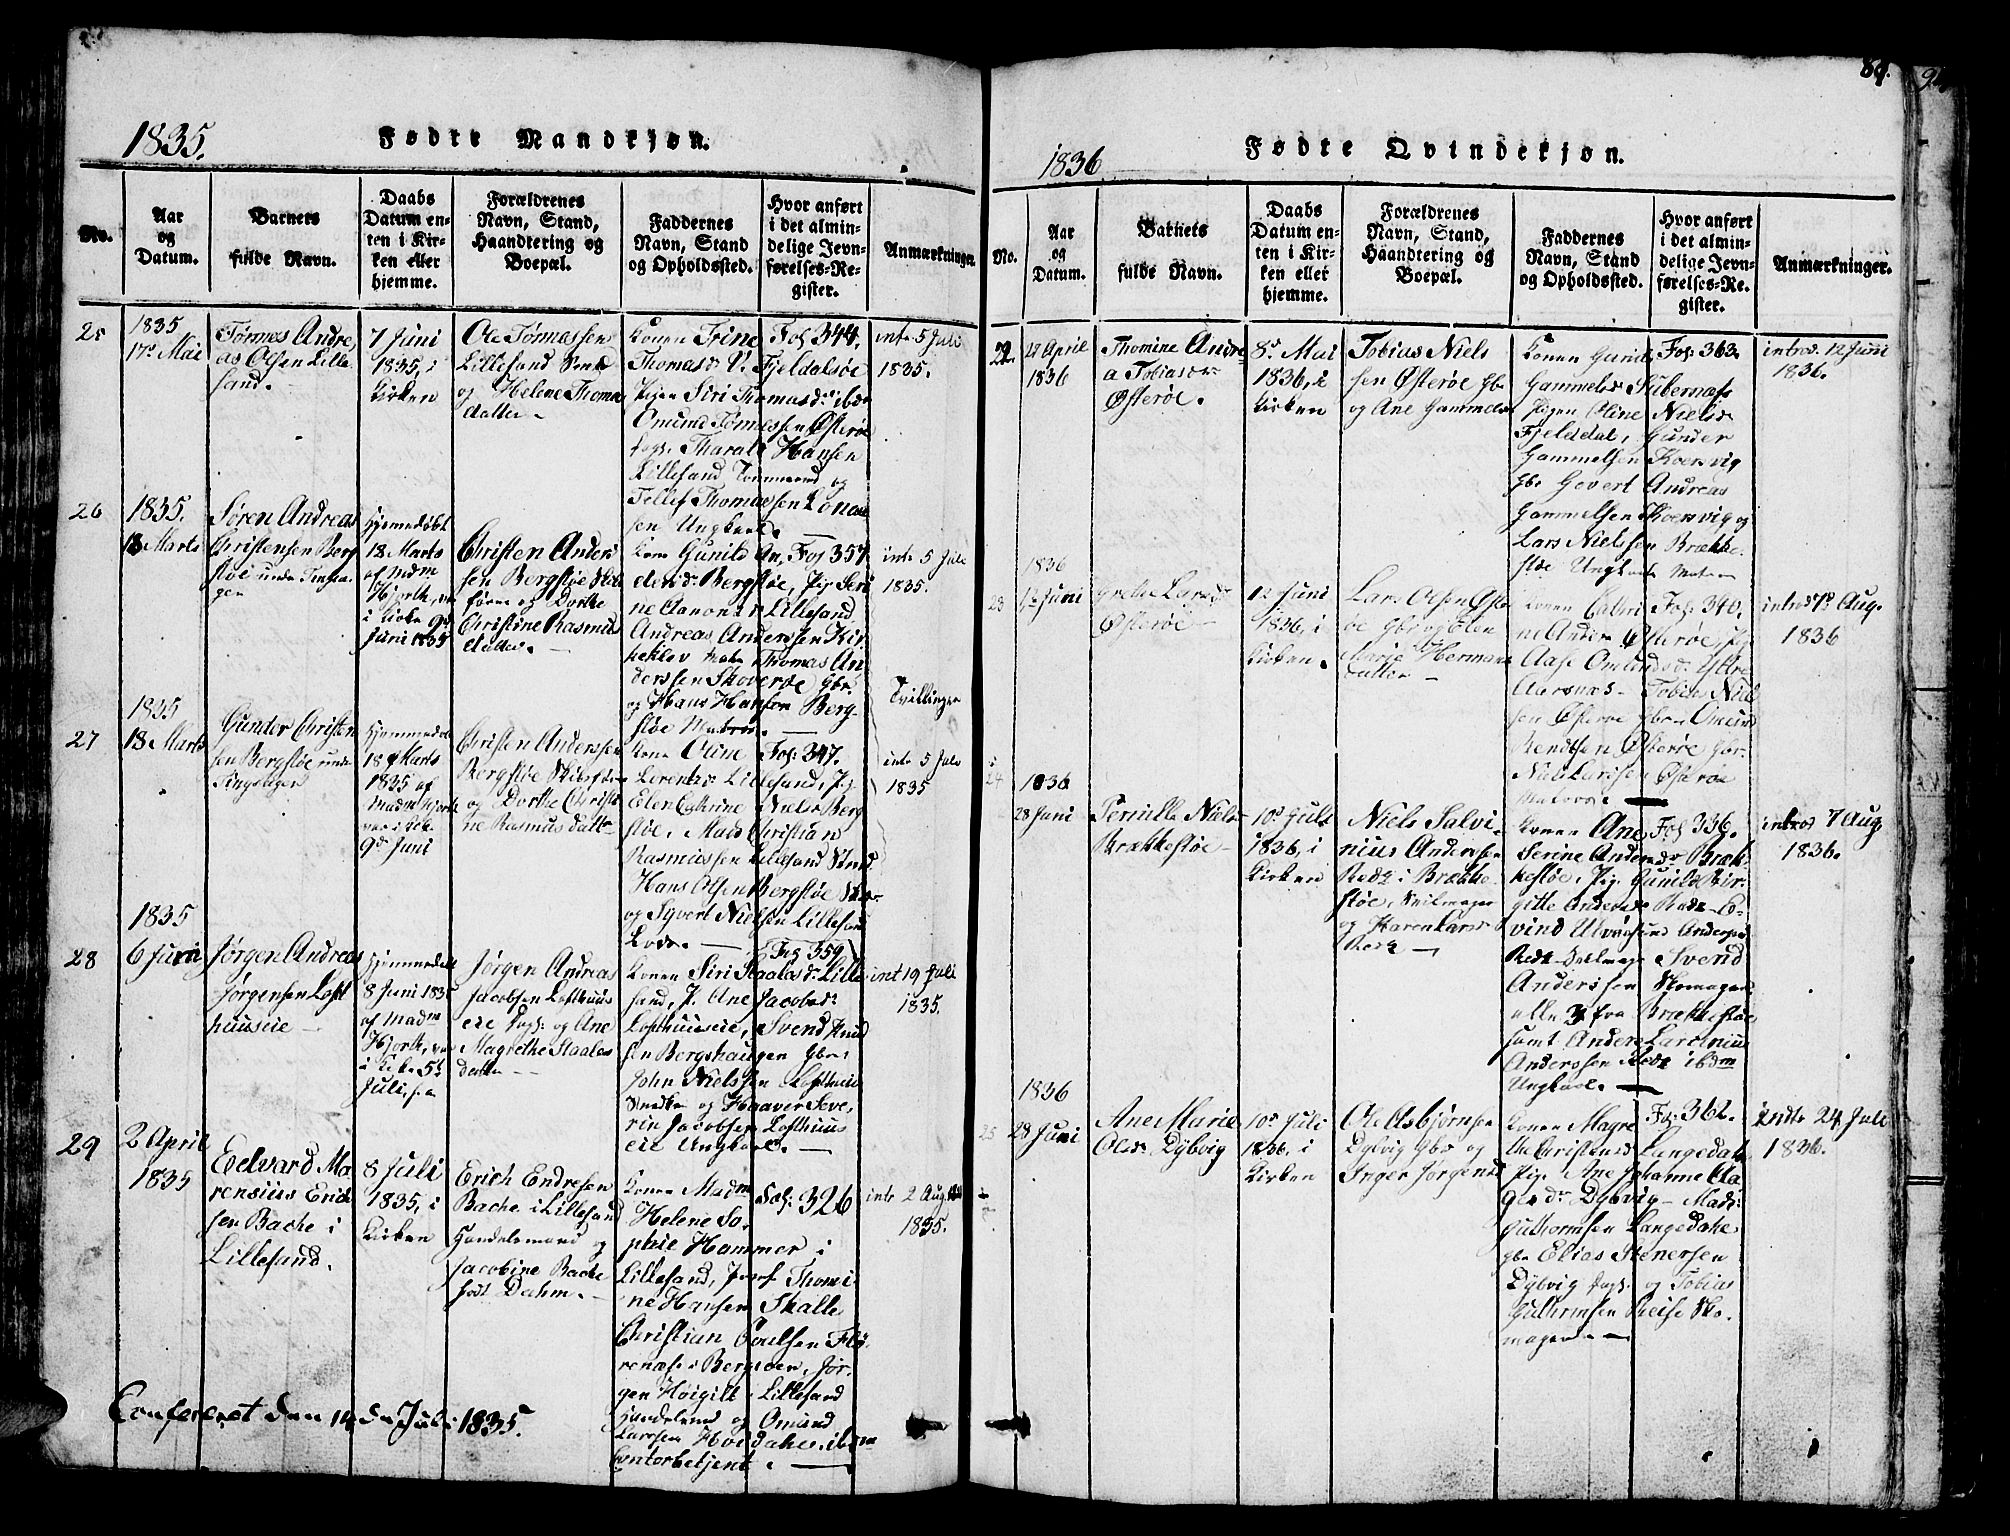 1835.
Fødte Mandkjøn.
No.
Aar
og
Datum.
Barnets
fulde Navn.
Daabs
Datum en-
ten i Kir-
ken eller
hjemme.
Forældrenes
Navn, Stand,
Haandtering og
Boepæl.
Faddernes
Navn, Stand
og Opholdssted.
Hvor anført
i det almin-
delige Jevn-
førelses-Re-
gister.
Anmærkninger.
25
1835
17de Mai
Tørmes Andre
as Olsen Lille
sand.
7 Juni
1835, i
Kirken
Ole Tørmessen
Lillesand
og Helene Thomas
datter
Konen Trine
Thomasdr V. Fjeldalsøe
Pigen Siri Thomasdr ibdm
Omund Tørmessen Østerøe
Tharald Hansen
Lillesand Tømmermd og
Tellef Thomassen
sen Ungkarl.
Fol 344.
intr 5 Juli
1835.
26
1835.
18 Marts
Søren Andreas
Christensen Berg
støe under Tingsa-
gen
Hjemmedøbt
18 Marts
af Mdm
Hjorth, var
i Kirke 9d
Juni 1835
Christen Anders
sen Bergstøe Ski
fører og Dorthe
Christine Rasmus
datter.
Kone Gunild An,
dersdr Bergstøe, Pig Seri
ne Aanonsen Lillesand
Andreas Anderssen Kir
keklev Thomas An
derssen Skoverøe gbr
og Hans Hansen Berg-
støe Matros.
Fol 357
intr 5 Juli
1835.
Tvillinger
27
1835
18 Marts
Gunder Christen
sen Bergstøe under
Tingsagen
Hjemmedøbt
18 Marts
1835 af
Madm Hjorth
var i Kirke
9d Juni
Christen Anderssen
Bergstøe Skibsfører
og Dorthe Christi
ne Rasmusdatter
Kone Oline
Lorentzdr Lillesand, Pig
Elen Cathrine Nielsdr Berg
støe, Mads Christian
Rasmussen Lillesand
Hans Olsen Bergstøe
og Syvert Nielsen Lillesand
Lods.
Fol: 347.
intr 5 Juli
1835
28
1835
6 Juni
Jørgen Andreas
Jørgensen Loft
huuseie
Hjemmedøbt
8 Juni 1835
af Madm
Hjorth, var
i Kirke 5t
Juli
Jørgen Andreas
Jacobsen Lofthuus
eie Dags: og Ane
Magrethe Staales
datter
Konen Siri Staalesdr Lille
sand, P. Ane Jacobsdr
Lofthuuseie, Svend Knud
sen Bergshaugen gbr
John Nielssen Lofthuus
Snedker og Haaver Seve,
rin Jacobsen Lofthuus
eie Ungkarl.
Fol 359
int 19 Juli
1835.
29
2 April
1835
Edvard Ma
rensius Erich
sen Bache i
Lillesand.
8 Juli
1835, i
Kirken
Erich Endresen
Bache i Lillesand
Handelsmand og
Jacobine Bache
født Dahm.
Konen Madm
Helene So,
phie Hammer i
Lillesand, Jomf Thomi
ne Hansen Skalle
Christian Poulsen Flø
renæs i Bergsøen, Jør,
gen Høigilt Lillesand
Handelsmd og Omund
Larssen Høvdaher, ibdm
Contorbetjent.
Fol: 326
intr 2 Aug.
1835.
Confereret den 14de Juli 1835.
84.
1836
Fødte Qvindekjøn.
No.
Aar
og
Datum.
Barnets
fulde Navn.
Daabs
Datum en-
ten i Kir-
ken eller
hjemme.
Forældrenes
Navn, Stand,
Haandtering og
Boepæl.
Faddernes
Navn, Stand
og Opholdssted.
Hvor anført
i det almin-
delige Jevn-
førelses-Re-
gister.
Anmærkninger.
22.
27 April
1836
Thomine Andre
a Tobiasdr
Østerøe.
8de Mai
1836, i
Kirken
Tobias Niels
sen Østerøe gbr
og Ane Gammelsdr
Konen Gunild
Gammelsdr Kubernæs
Pigen Oline Nielsdr
Fjelddal, Gunder
Gammelsen Koersvig
gbr Govert Andreas
Gammelsen Koersvig og
Lars Nielssen Brække
støe Ungkarle
Fol: 363
introd. 12 Juni
1836.
23
1836
Juni
Grethe Larsdr
Østerøe
12 Juni
1836, i
Kirken.
Lars Olsen Øster
øe gbr og Elen
Marie Hermans
datter
Konen Cathri
ne Andersdr Østerøe, Pig
Aase Omundsdr Ystre
Aarsnæs Tobias Niel
sen Østerøe gbr Omund
Bendtsen Østerøe gbr
Niels Larssen Østerøe
Matros
Fol: 340.
introd 7de Aug.
1836
24
1836
28 Juni
Pernille Nielsdr
Brækkestøe
10de Juli
1836, i
Kirken
Niels Salvi-
nius Anderssen
Redz i Brække-
støe, Seilmager
og Karen Larsdr
Redz
Konen Ane
Serine Andersdr Bræk
kestøe, Pig. Gunild Bir-
gitte Andersdr Redz Eo-
vind Ulvøesund Anderssen
Redz Seilmager Svend
Anderssen Skomager
alle 3 fra Brækkestøe
samt Anders Larenius
Anderssen Redz ibdm
Ungkarl.
Fol 336.
introd 7 Aug
1836.
25
1836
28 Juni
Ane Marie
Olsdr Dybvig
10de Juli
1836, i
Kirken
Ole Asbjørnsen
Dybvig gbr og
Inger Jørgensd
Konen Magre
the Christensd Langedahl
Pig. Ane Johanne Aa
gesdr Dybvig Mads
Guthormsen Langedahl
gbr Elias Stenersen
Dybvig Dags: og Tobias
Guthormsen Reise Sko-
mager
Fol: 362.
indtr 24 Juli
1836.